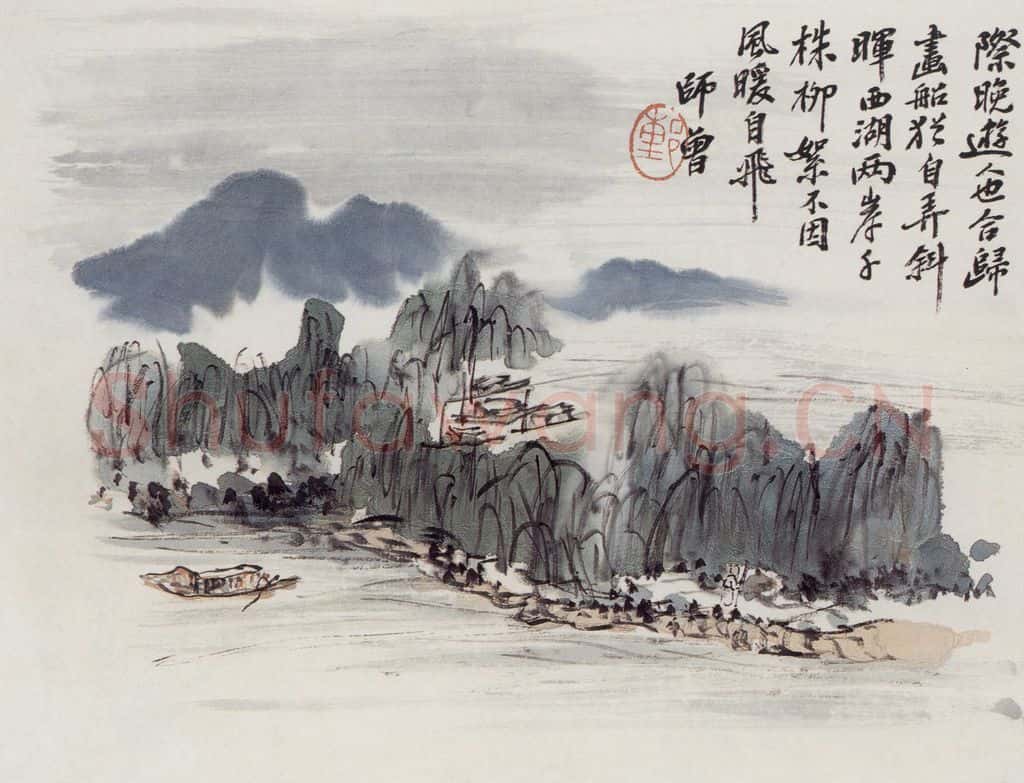 際晚遊人也合歸
畫船犹自弄斜
暉西湖两岸千
株柳絮不因
風暖自飛
師曾
Shufawang.CN